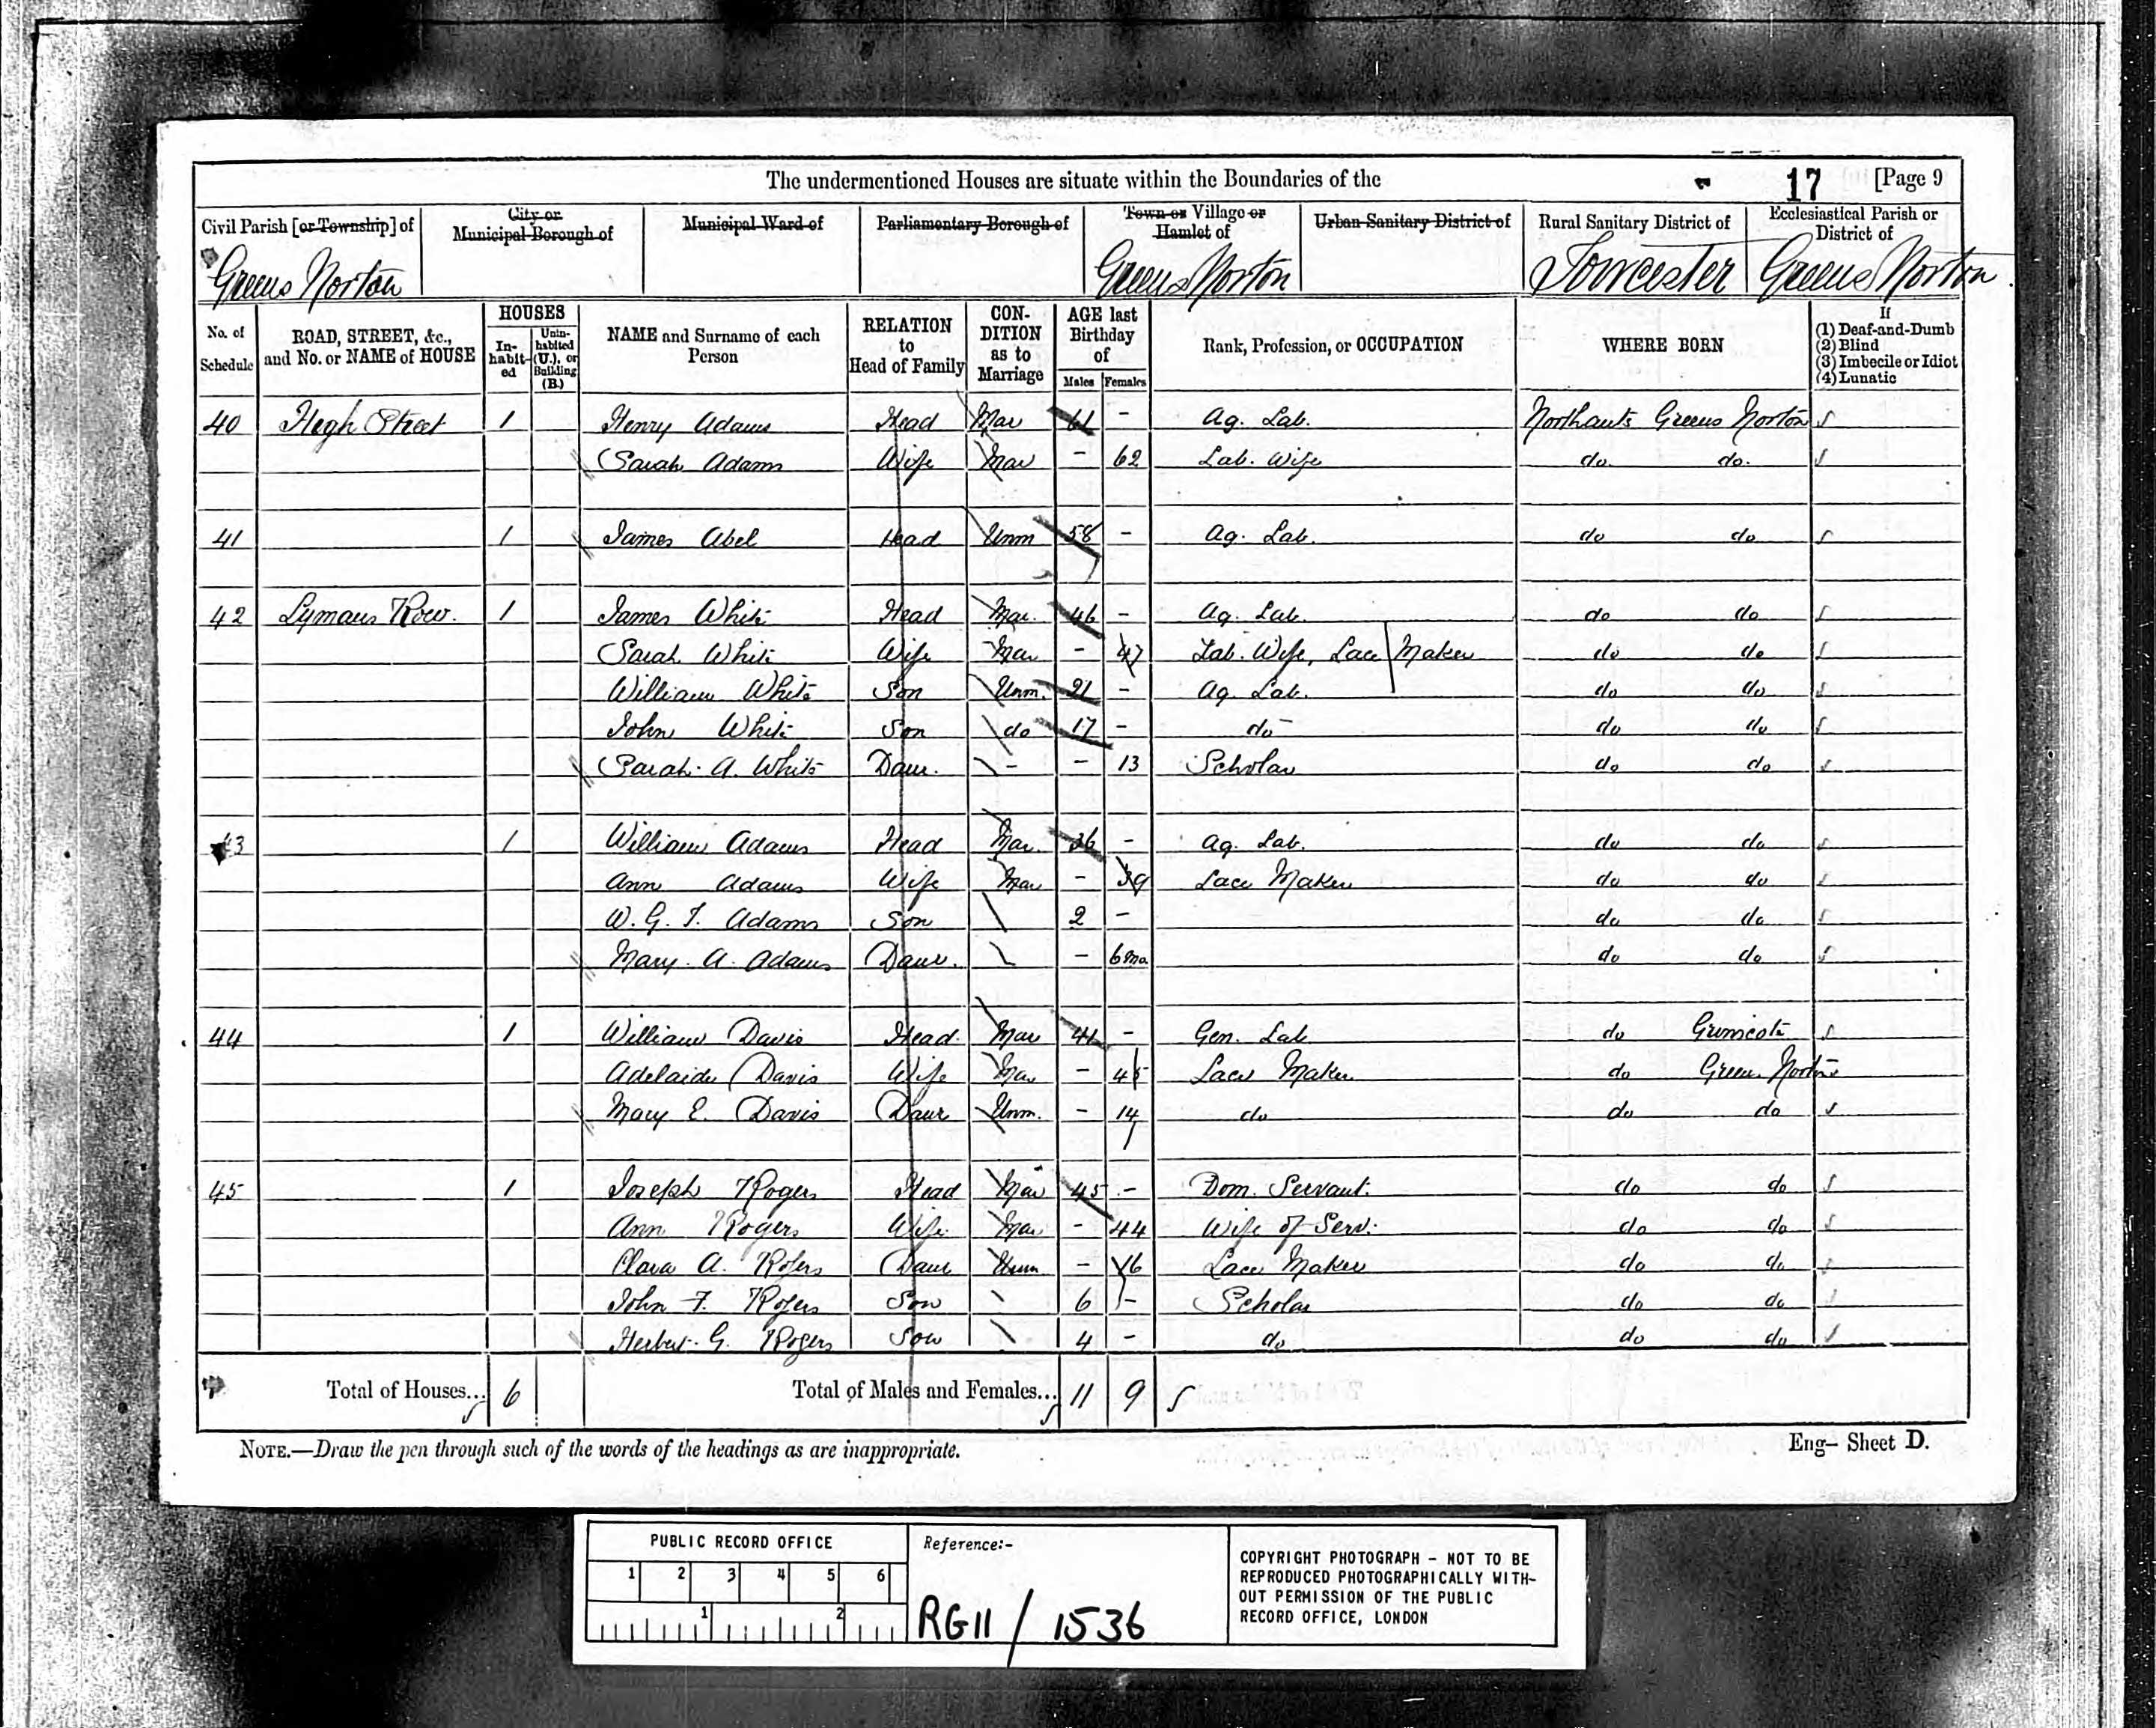 The undermentioned Houses are situate within the Boundaries of the 17 [Page 9
Civil Parish [or Township] of City or Municipal Borough of Municipal Ward of Parliamentary Borough of Town or Village or Hamlet of Urban Sanitary District of Rural Sanitary District of Ecclesiastical Parish or District of
Greens Norton Greens Norton Towcester Greens Norton
No. of Schedule ROAD, STREET, &c., and No. or NAME of HOUSE HOUSES In-habit-ed Unin-habited (U.), or Building (B.) NAME and Surname of each Person RELATION to Head of Family CON-DITION as to Marriage AGE last Birthday of Males Females Rank, Profession, or OCCUPATION WHERE BORN If (1) Deaf-and-Dumb (2) Blind (3) Imbecile or Idiot (4) Lunatic
40 High Street 1 Henry Adams Head Mar 61 - Ag. Lab. Northants Greens Norton
Sarah Adams Wife Mar - 62 Lab. Wife do. do.
41 1 James Abel Head Unm 58 - Ag. Lab. do do
42 Lymans Row. 1 James White Head Mar. 46 - Ag. Lab. do do
Sarah White Wife Mar - 47 Lab. Wife, Lace Maker do do
William White Son Unm. 21 - Ag. Lab. do do
John White Son do 17 - do do do
Sarah A. White Daur. - - 13 Scholar do do
43 1 William Adams Head Mar. 36 - Ag. Lab. do do
Ann Adams Wife Mar - 39 Lace Maker do do
W. G. F. Adams Son 2 - do do
Mary A. Adams Daur. - 6 mo do do
44 1 William Davis Head Mar 41 - Gen. Lab do Grimscote
Adelaide Davis Wife Mar - 45 Lace Maker do Greens Norton
Mary E. Davis Daur Unm. - 14 do do do
45 1 Joseph Rogers Head Mar 45 - Dom. Servant. do do
Ann Rogers Wife Mar - 44 Wife of Serv: do do
Clara A. Rogers Daur Unm - 16 Lace Maker do do
John F. Rogers Son 6 - Scholar do do
Herbert G. Rogers Son 4 - do do do
Total of Houses... 6 Total of Males and Females... 11 9
NOTE.—Draw the pen through such of the words of the headings as are inappropriate. Eng– Sheet D.
PUBLIC RECORD OFFICE
1 2 3 4 5 6
1 2
Reference:-
RG11 / 1536
COPYRIGHT PHOTOGRAPH – NOT TO BE
REPRODUCED PHOTOGRAPHICALLY WITH-
OUT PERMISSION OF THE PUBLIC
RECORD OFFICE, LONDON